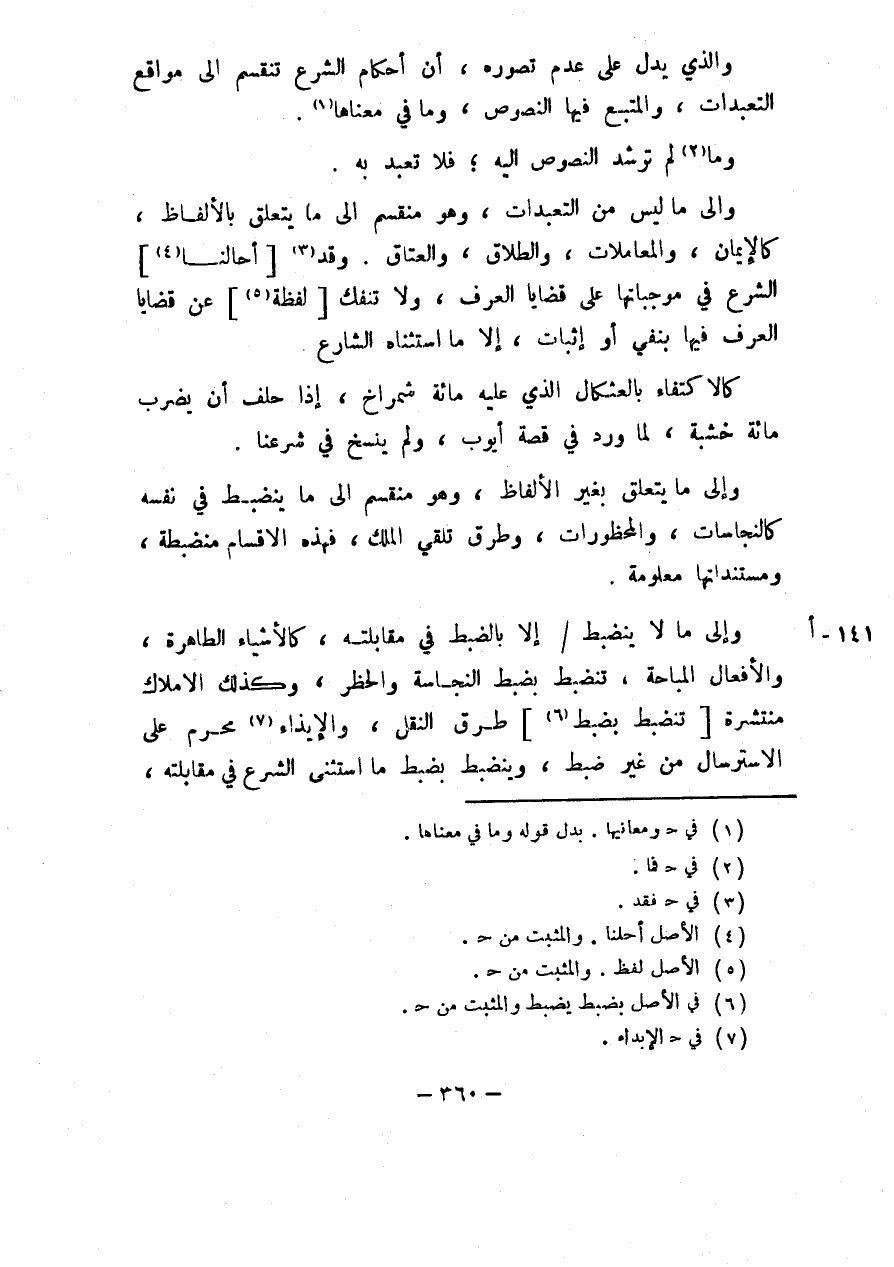 والذي يدل على عدم تصوره ، أن أحكام الشرع تنقسم الى مواقع
التعبدات ، والمتبع فيها النصوص ، وما في معناها(١) .
وما(٢) لم ترشد النصوص اليه ؛ فلا تعبد به .
والى ما ليس من التعبدات ، وهو منقسم الى ما يتعلق بالألفاظ ،
كالإيمان ، والمعاملات ، والطلاق ، والعتاق . وقد(٣) [ أحالنا(٤) ]
الشرع في موجباتها على قضايا العرف ، ولا تنفك [ لفظة(٥) ] عن قضايا
العرف فيها بنفي أو إثبات ، إلا ما استثناه الشارع .
كالاكتفاء بالعثكال الذي عليه مائة شمراخ ، إذا حلف أن يضرب
مائة خشبة ، لما ورد في قصة أيوب ، ولم ينسخ في شرعنا .
وإلى ما يتعلق بغير الألفاظ ، وهو منقسم الى ما ينضبط في نفسه
كالنجاسات ، والمحظورات ، وطرق تلقي الملك ، فهذه الاقسام منضبطة ،
ومستنداتها معلومة .
١٤١ - أ وإلى ما لا ينضبط / إلا بالضبط في مقابلته ، كالأشياء الطاهرة ،
والأفعال المباحة ، تنضبط بضبط النجاسة والحظر ، وكذلك الاملاك
منتشرة [ تنضبط بضبط(٦) ] طرق النقل ، والإيذاء(٧) محرم على
الاسترسال من غير ضبط ، وينضبط بضبط ما استثنى الشرع في مقابلته ،
(١) في حـ ومعانيها . بدل قوله وما في معناها .
(٢) في حـ فما .
(٣) في حـ فقد .
(٤) الأصل أحلنا . والمثبت من حـ .
(٥) الأصل لفظ . والمثبت من حـ .
(٦) في الأصل بضبط يضبط والمثبت من حـ .
(٧) في حـ الإبداء .
– ٣٦٠ –